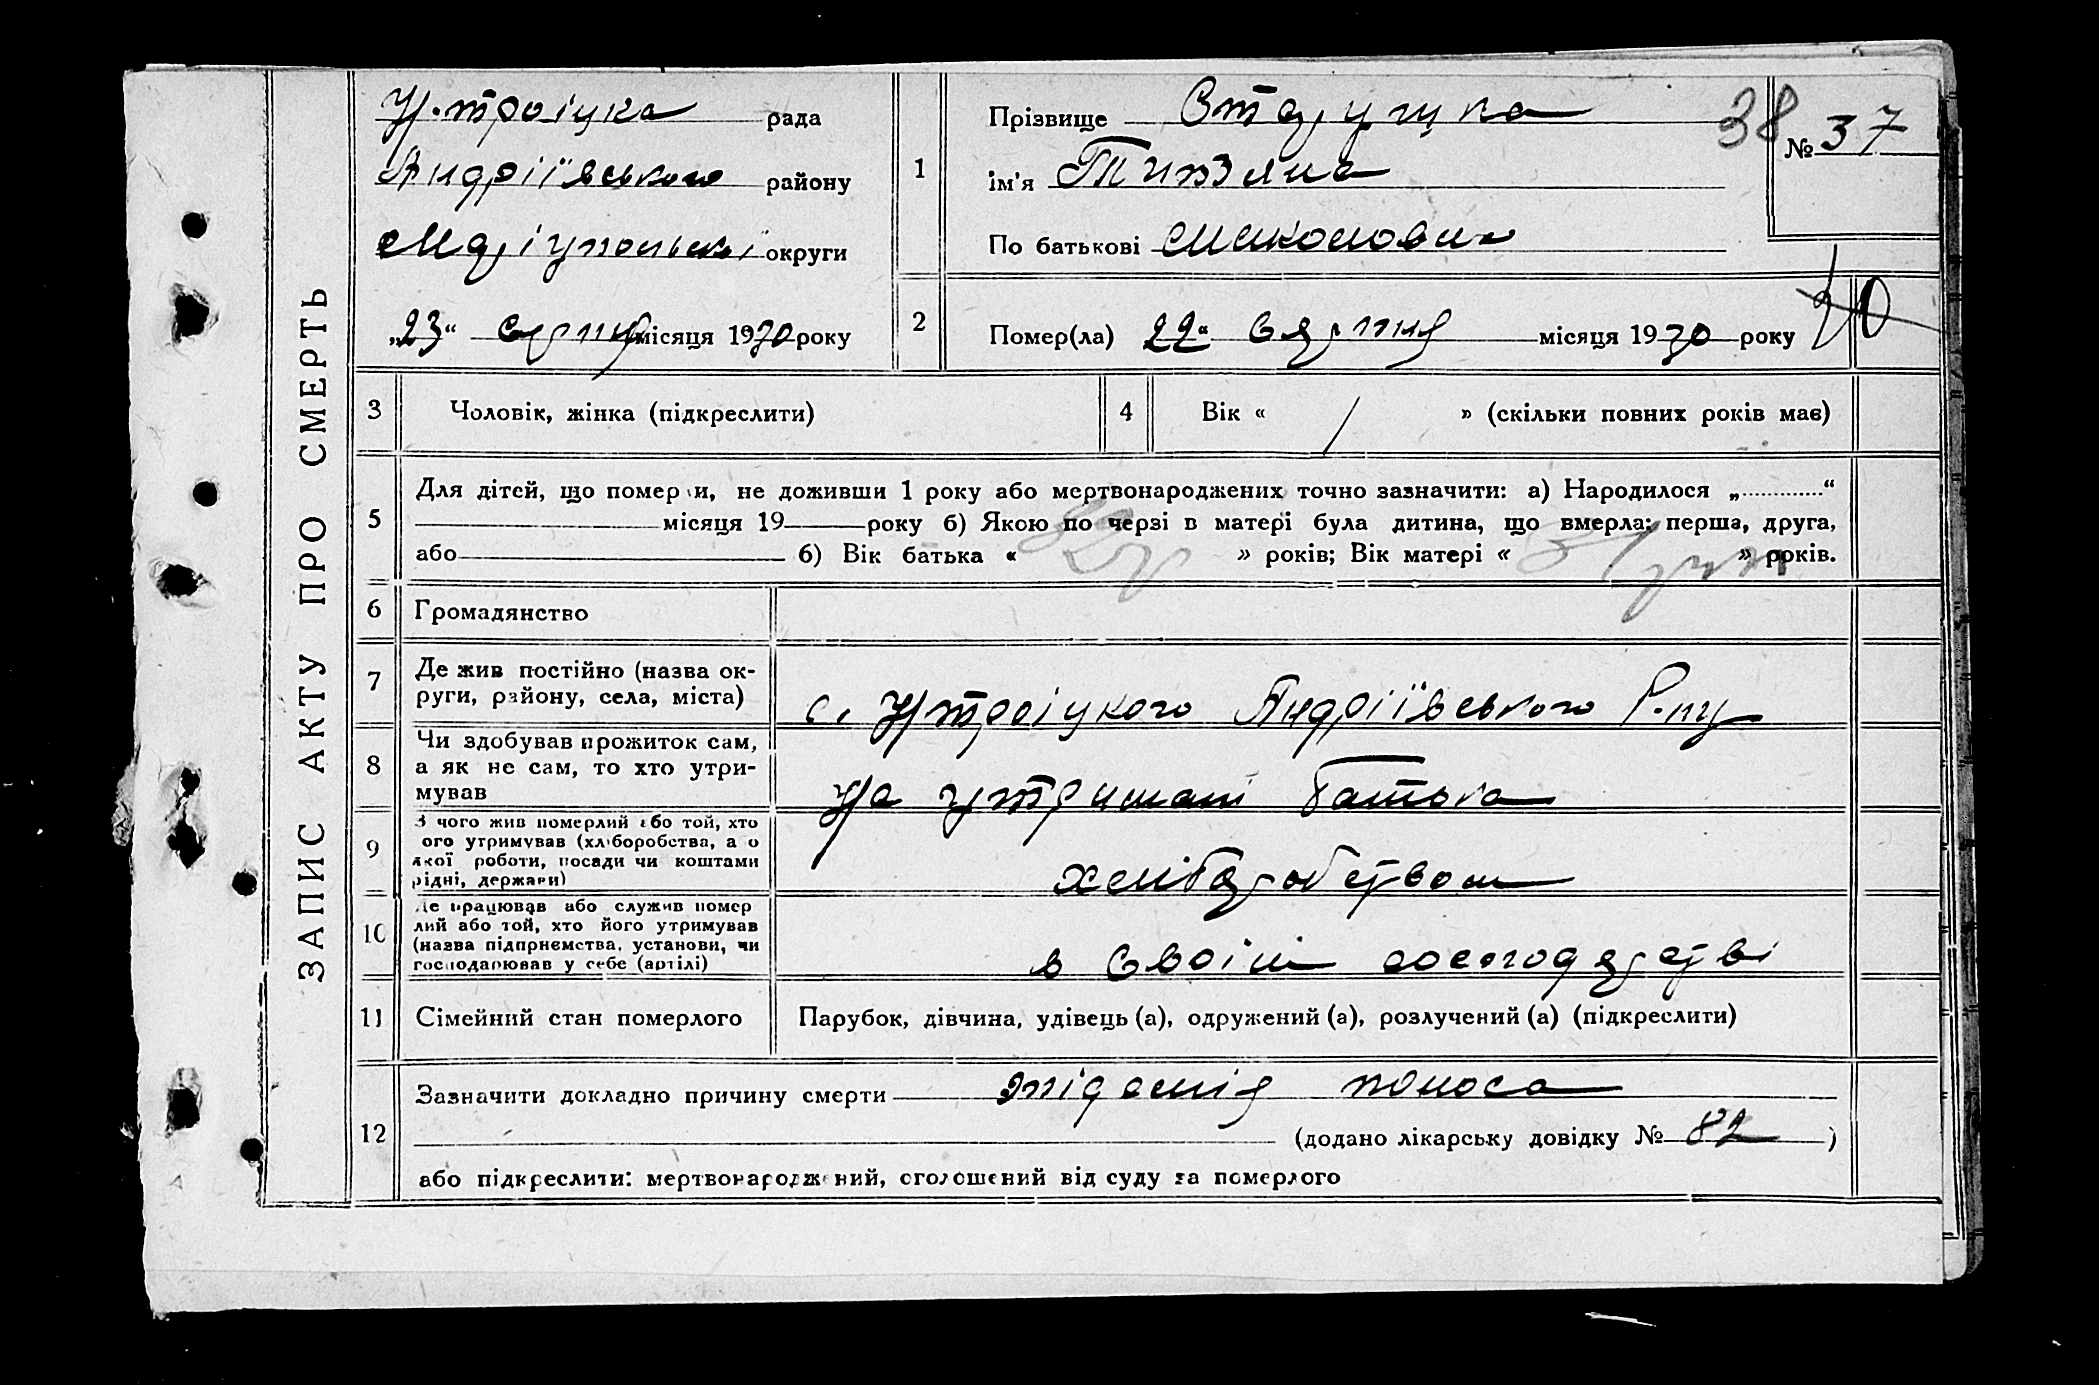 ЗАПИС АКТУ ПРО СМЕРТЬ
рада
Андріївського району
Маріупольської округи
„23“ серпня місяця 1930 року
38
№ 37
1
Прізвище
ім'я Титяна
По батькові Миколовна
2
Помер(ла) 22“ серпня місяця 1930 року
3
Чоловік, жінка (підкреслити)
4
Вік « / » (скільки повних років має)
5
Для дітей, що померли, не доживши 1 року або мертвонароджених точно зазначити: а) Народилося „ “
місяця 19 року б) Якою по черзі в матері була дитина, що вмерла: перша, друга,
або б) Вік батька « » років; Вік матері « » років.
6
Громадянство
7
Де жив постійно (назва ок-
руги, району, села, міста)
с. Андріївського Р-ну
8
Чи здобував прожиток сам,
а як не сам, то хто утри-
мував
На утримані батька
9
З чого жив померлий або той, хто
ого утримував (хліборобства, а о
якої роботи, посади чи коштами
рідні, держави)
хліборобством
10
Де працював або служив помер
лий або той, хто його утримував
(назва підприємства, установи, чи
господарював у себе (артілі)
в своїм господарстві
11
Сімейний стан померлого
Парубок, дівчина, удівець (а), одружений (а), розлучений (а) (підкреслити)
12
Зазначити докладно причину смерти епідемія поноса
(додано лікарську довідку № 82 )
або підкреслити: мертвонароджений, оголошений від суду за померлого